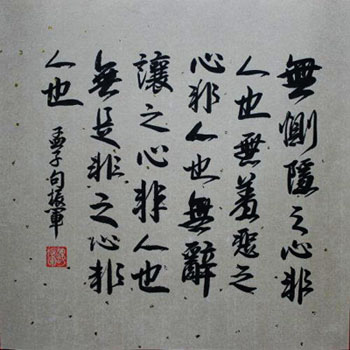 無惻隱之心非
人也無羞惡之
心非人也無辭
讓之心非人也
無是非之心非
人也
孟子句振軍